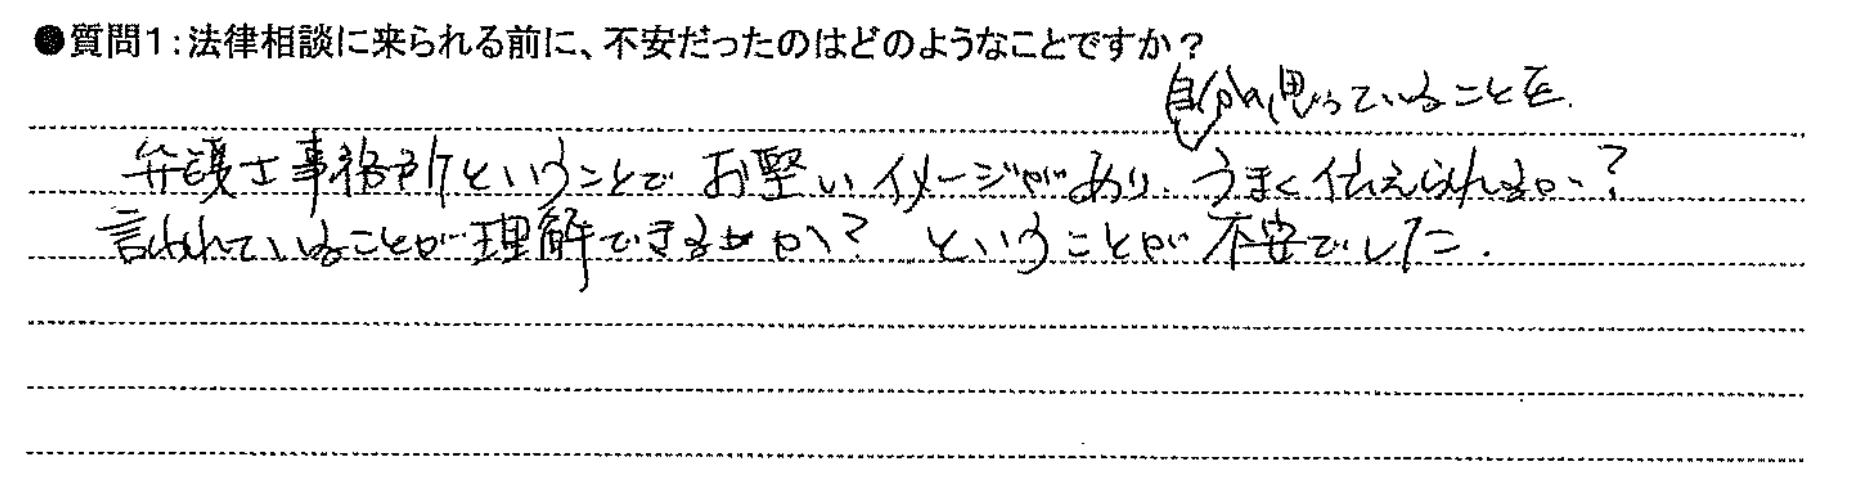 ●質問1:法律相談に来られる前に、不安だったのはどのようなことですか?
自分の思っていることを
弁護士事務所ということでお堅いイメージがあり、うまく伝えられるか?
言われていることが理解できるか?ということが不安でした.